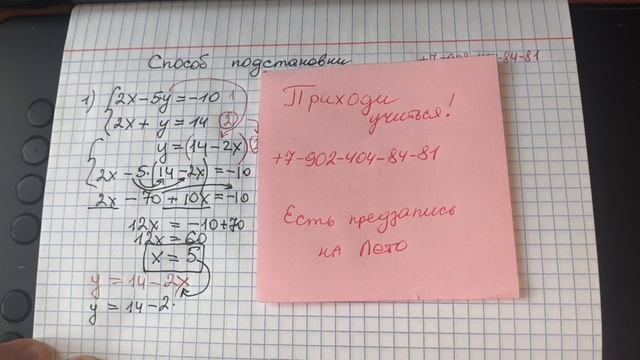 Способ подстановки
+7-902-404-84-81
1) {2x-5y=-10 1
{2x+y=14 2
{y=(14-2x)
2x-5·(14-2x)=-10
2x-70+10x=-10
12x=-10+70
12x=60
x=5
y=14-2x
y=14-2·
Приходи
учиться!
+7-902-404-84-81
Есть предзапись
на Лето